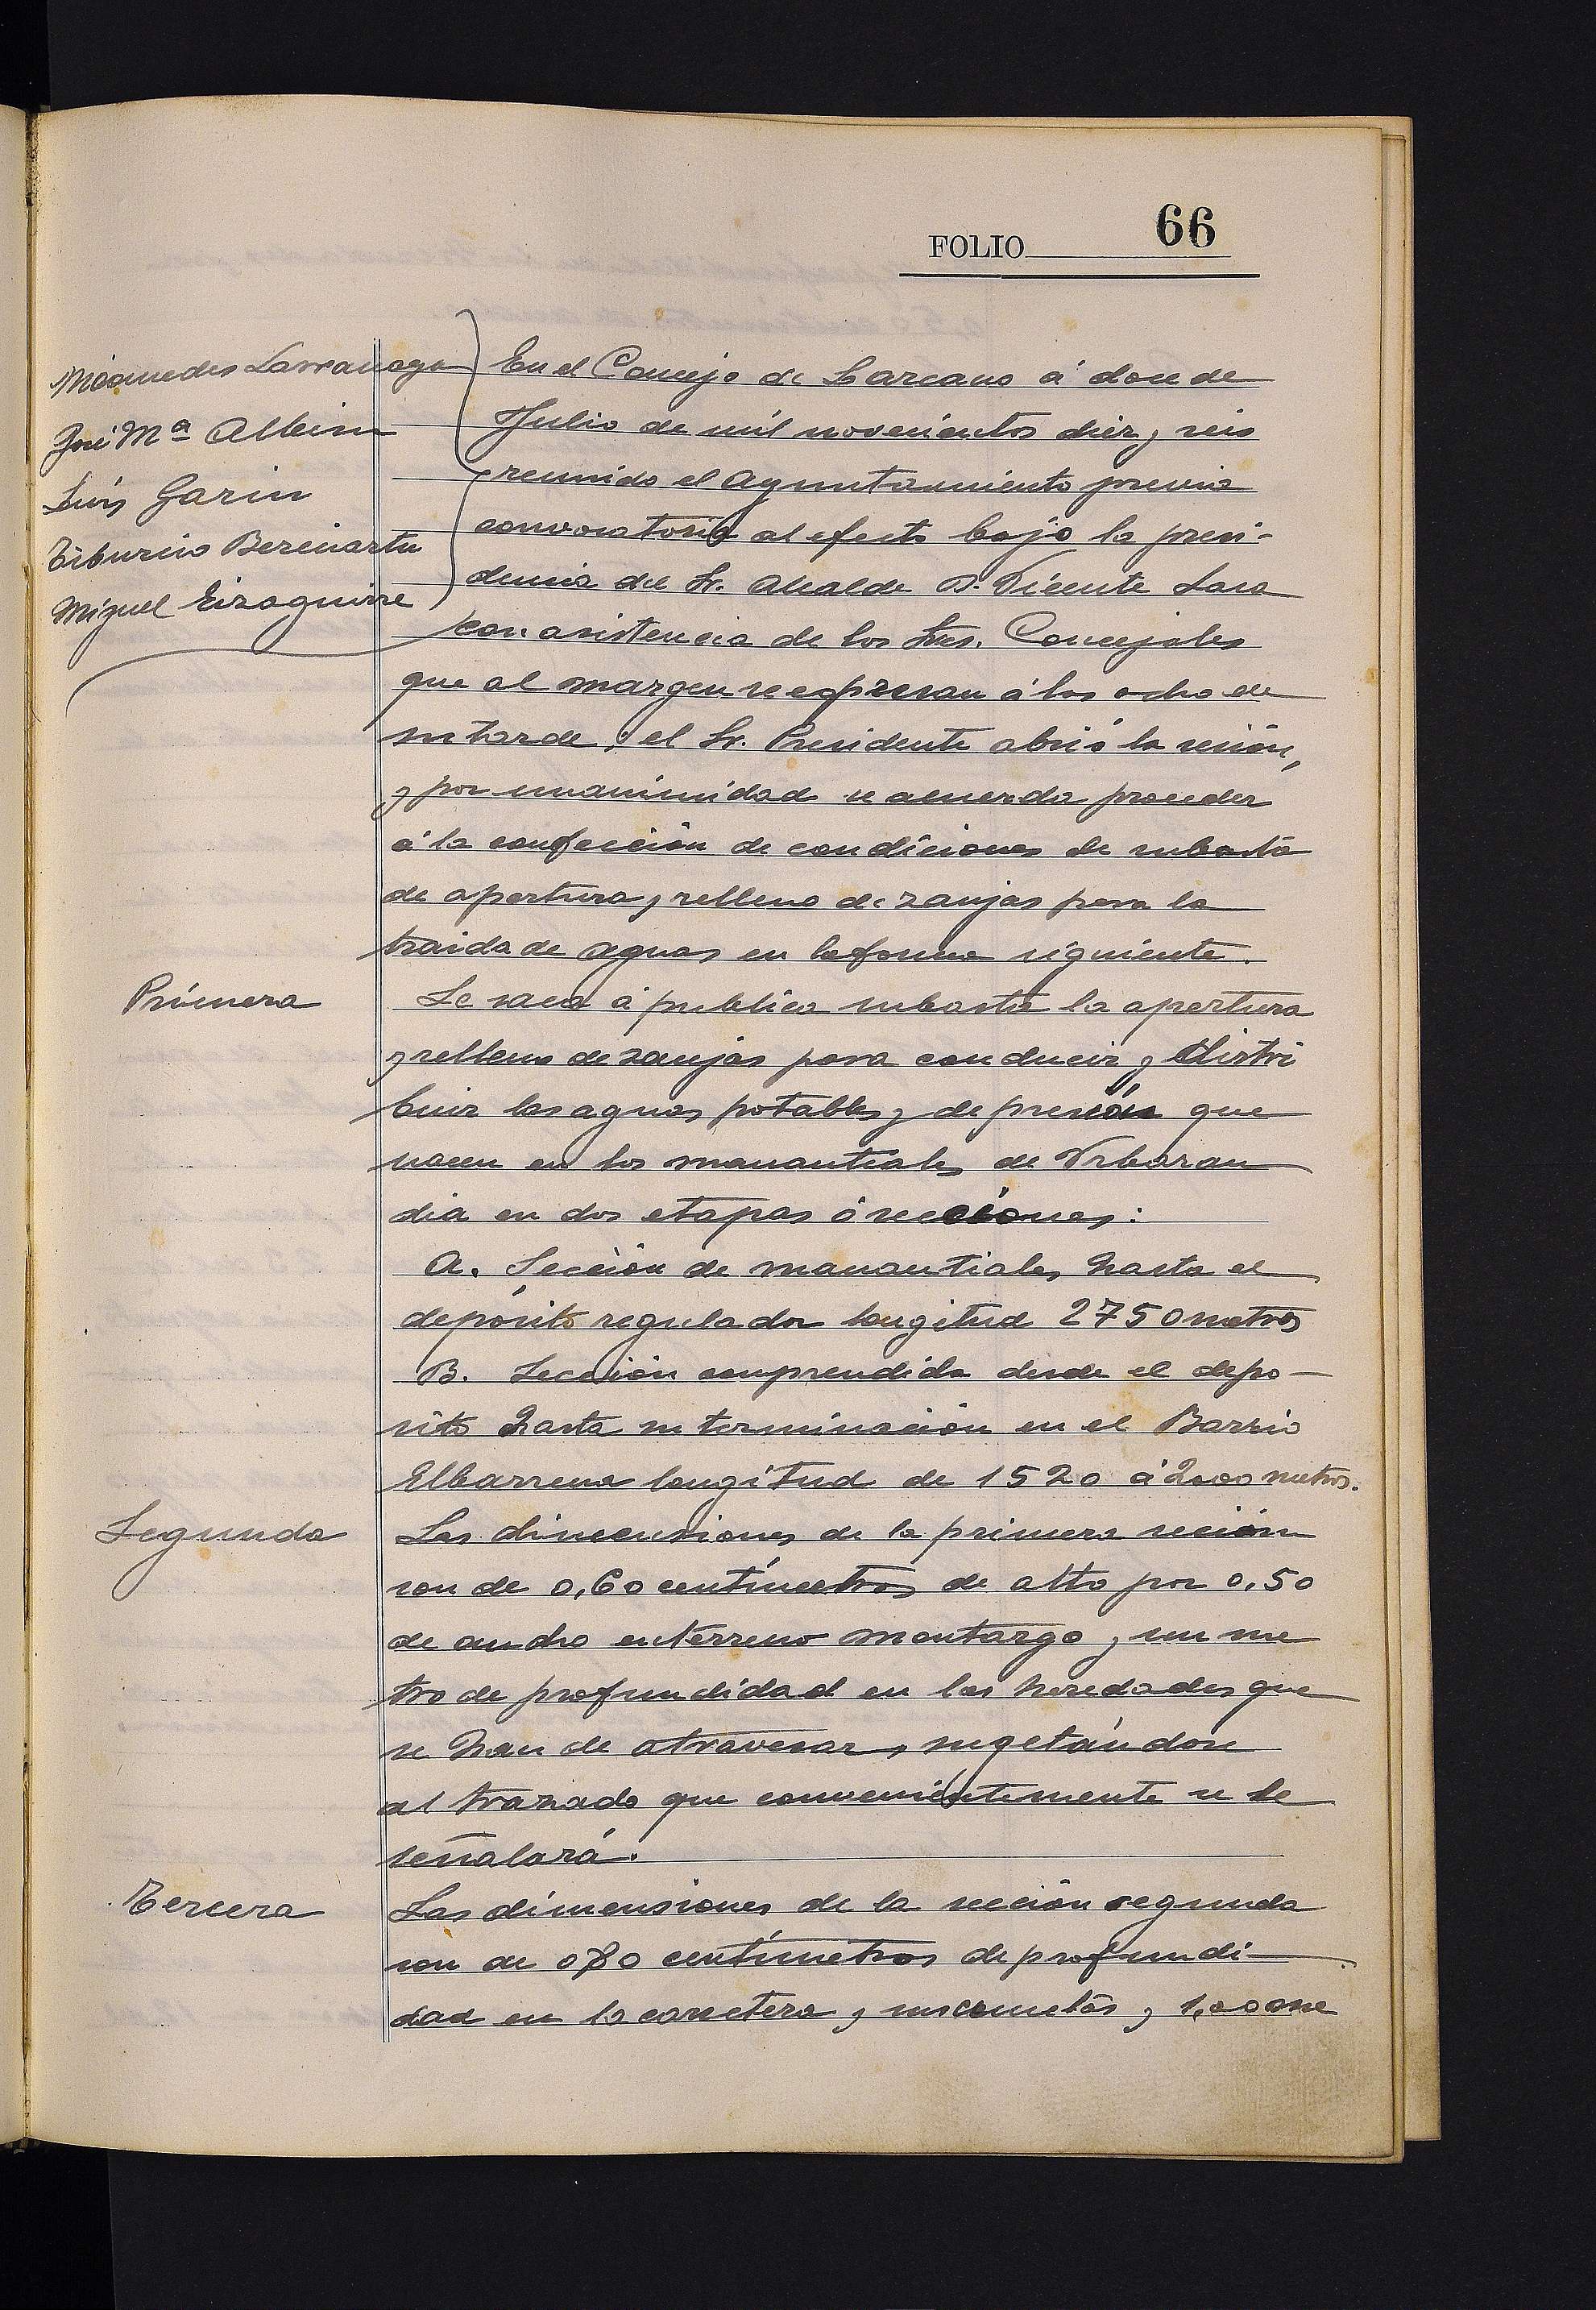 FOLIO 66
Nicomedes Larrañaga
José Mª Albisu
Luis Garin
Tiburcio Bereciartu
Miguel Eizaguirre
En el Concejo de Lazcano á doce de
Julio de mil novecientos diez y seis
reunido el Ayuntamiento previa
convocatoria al efecto bajo la presi-
dencia del Sr. Alcalde D. Vicente Lasa
con asistencia de los Sres. Concejales
que al margen se expresan á las ocho de
su tarde; el Sr. Presidente abrió la sesión,
y por unanimidad se acuerda proceder
á la confección de condiciones de subasta
de apertura y relleno de zanjas para la
traida de aguas en la forma siguiente.
Primera
Se saca á publica subasta la apertura
y relleno de zanjas para conducir y distri
buir las aguas potables y de presión que
nacen en los manantiales de Urbaran
dia en dos etapas ó secciones:
A. Sección de manantiales hasta el
depósito regulador longitud 2750 metros
B. Sección comprendida desde el depo-
sito hasta su terminación en el Barrio
Elbarrena longitud de 1520 á 2000 metros.
Segunda
Las dimensiones de la primera sección
son de 0,60 centímetros de alto por 0,50
de ancho en terreno montargo y un me
tro de profundidad en las heredades que
se han de atravesar, sugetándose
al trazado que convenientemente se le
señalará.
Tercera
Las dimensiones de la sección segunda
son de 080 centímetros de profundi-
dad en la carretera y sus cunetas y 1,00 me